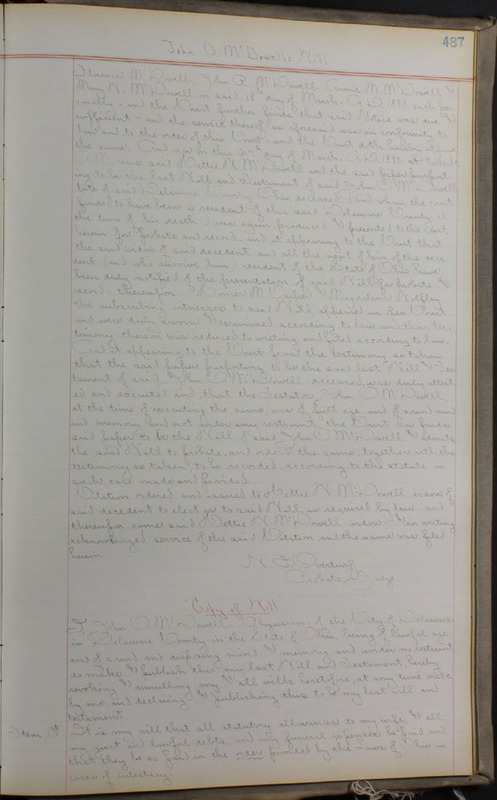 487
John O. McDowell's Will
Florence McDowell, John R. McDowell, McDowell &
Mary N. McDowell on said 18th day of March A.D. 189 each per-
sonally and the Court further finds that said Notice was due &
sufficient and the service thereof as aforesaid was in conformity to
law and to the order of this Court, and the Court doth
the same. And now on this day of March A.D. 1890 at
A.M. came said Nettie H. McDowell and the said paper purport-
ing to be the last Will and Testament of said John O. McDowell
late of said Delaware County Ohio, deceased, (and whom the court
finds to have been a resident of this said Delaware County at
the time of his death) was again produced & presented to the court
herein for probate and record, and it appearing to the Court that
the said widow of said decedent and all the next of kin of the dece-
dent (and who survive him) resident of the State of Ohio have
been duly notified of the presentation of said Will for probate &
record, thereupon &
the subscribing witnesses to said Will appeared in open Court,
and were duly sworn & examined according to law and their tes-
timony therein was reduced to writing and filed according to law.
And it appearing to the Court from the testimony so taken
that the said paper purporting to be the said last Will & Tes-
tament of said John O. McDowell, deceased, was duly attest-
ed and executed and, that the Testator, John O. McDowell
at the time of executing the same, was of full age, and of sound mind
and memory and not under any restraint, the Court now finds
said paper to be the Will of said John O. McDowell & admits
the said Will to probate, and orders the same, together with the
testimony so taken, to be recorded, according to the statute in
such case made and provided.
Citation ordered and issued to Nettie H. McDowell widow of
said decedent to elect as to said Will, as required by law, and
thereupon came said Nettie H. McDowell widow & in writing
acknowledged service of the said Citation and the same was filed
herein
Probate Judge.
Copy of Will
I, John O. McDowell, Physician, of the City of Delaware
in Delaware County in the State of Ohio, being of lawful age
and of sound and disposing mind & memory, and under no restraint,
do make & publish this my last Will and Testament hereby
revoking & annulling any & all wills heretofore, at any time made
by me, and declaring & publishing this to be my last will and
testament.
Item 1st It is my will that all statutory allowances to my wife, & all
my just and lawful debts, and my funeral expenses be paid and
that they be so paid in the order provided by the laws of Ohio in
cases of intestacy.